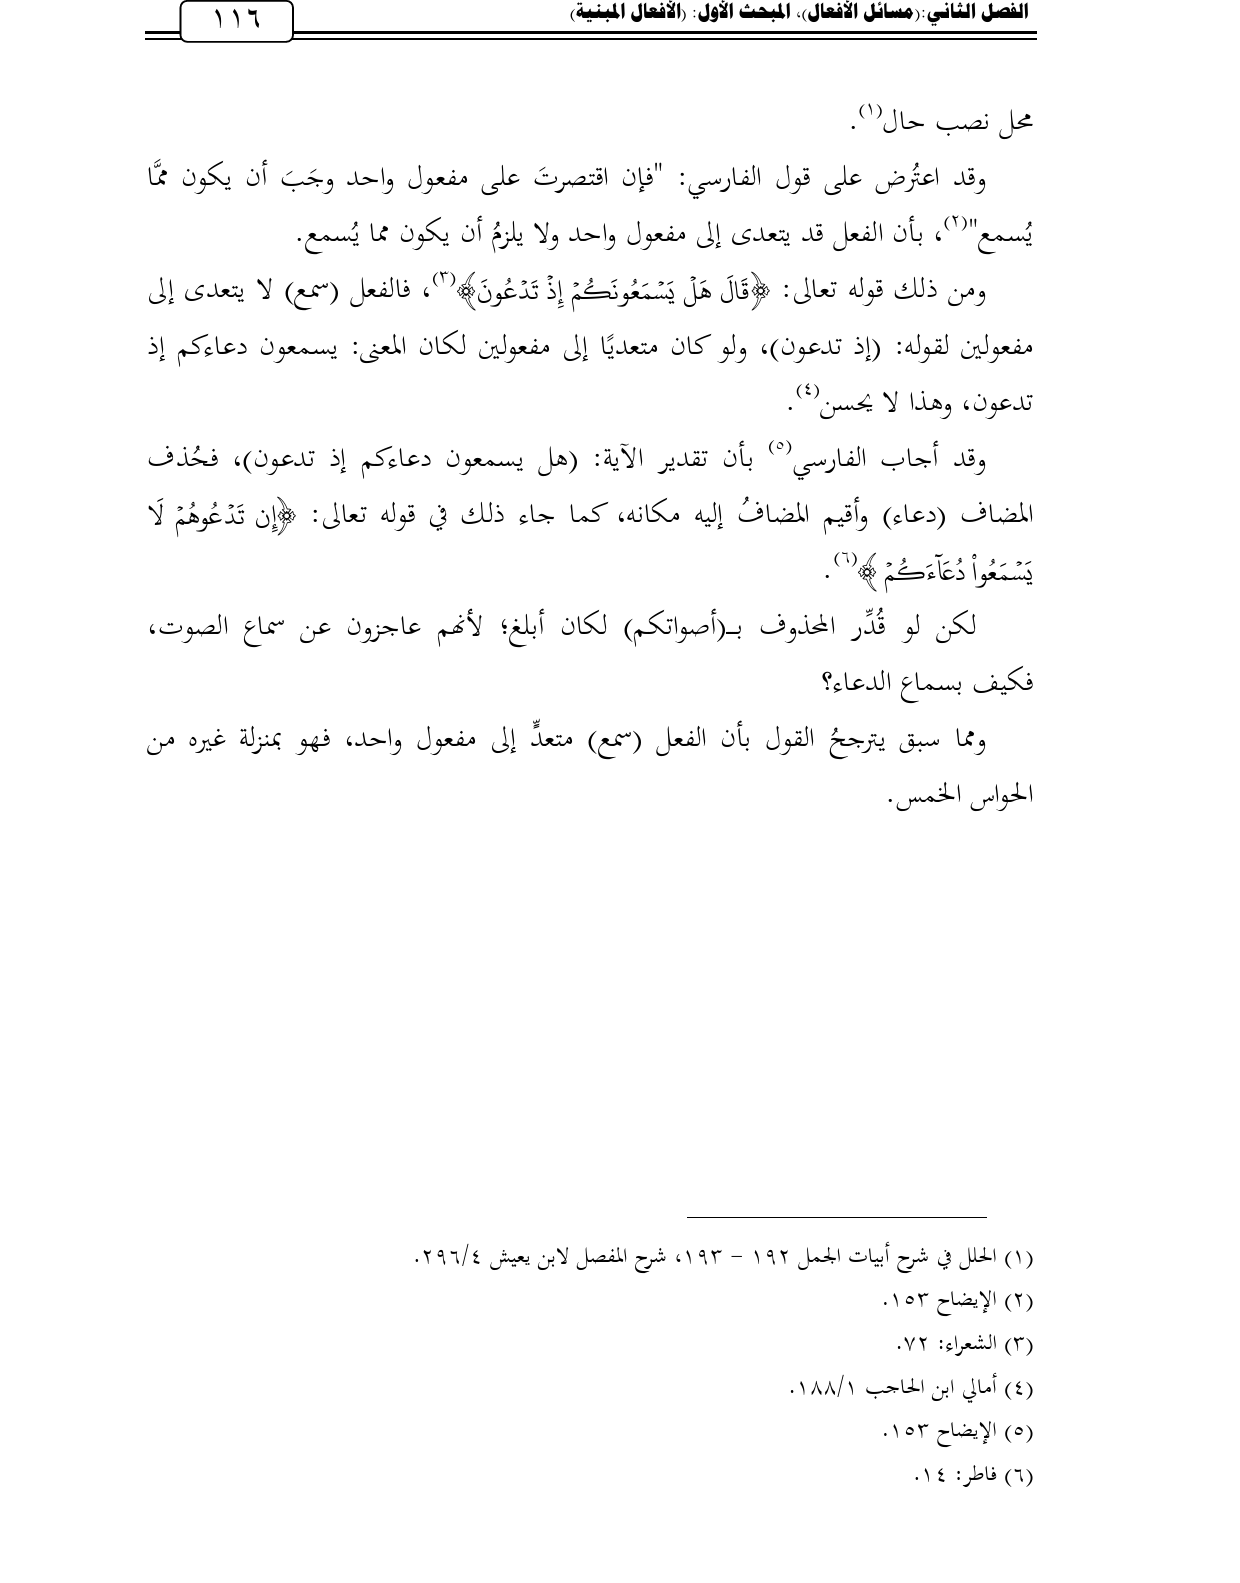 الفصل الثاني:(مسائل الأفعال)، المبحث الأول: (الأفعال المبنية)
١١٦
محل نصب حال(١).
وقد اعتُرض على قول الفارسي: "فإن اقتصرتَ على مفعول واحد وجَبَ أن يكون ممَّا
يُسمع"(٢)، بأن الفعل قد يتعدى إلى مفعول واحد ولا يلزمُ أن يكون مما يُسمع.
ومن ذلك قوله تعالى: ﴿قَالَ هَلْ يَسْمَعُونَكُمْ إِذْ تَدْعُونَ﴾(٣)، فالفعل (سمع) لا يتعدى إلى
مفعولين لقوله: (إذ تدعون)، ولو كان متعديًا إلى مفعولين لكان المعنى: يسمعون دعاءكم إذ
تدعون، وهذا لا يحسن(٤).
وقد أجاب الفارسي(٥) بأن تقدير الآية: (هل يسمعون دعاءكم إذ تدعون)، فحُذف
المضاف (دعاء) وأقيم المضافُ إليه مكانه، كما جاء ذلك في قوله تعالى: ﴿إِن تَدْعُوهُمْ لَا
يَسْمَعُواْ دُعَآءَكُمْ﴾(٦).
لكن لو قُدِّر المحذوف بـ(أصواتكم) لكان أبلغ؛ لأنهم عاجزون عن سماع الصوت،
فكيف بسماع الدعاء؟
ومما سبق يترجحُ القول بأن الفعل (سمع) متعدٍّ إلى مفعول واحد، فهو بمنزلة غيره من
الحواس الخمس.
(١) الحلل في شرح أبيات الجمل ١٩٢ – ١٩٣، شرح المفصل لابن يعيش ٢٩٦/٤.
(٢) الإيضاح ١٥٣.
(٣) الشعراء: ٧٢.
(٤) أمالي ابن الحاجب ١٨٨/١.
(٥) الإيضاح ١٥٣.
(٦) فاطر: ١٤.